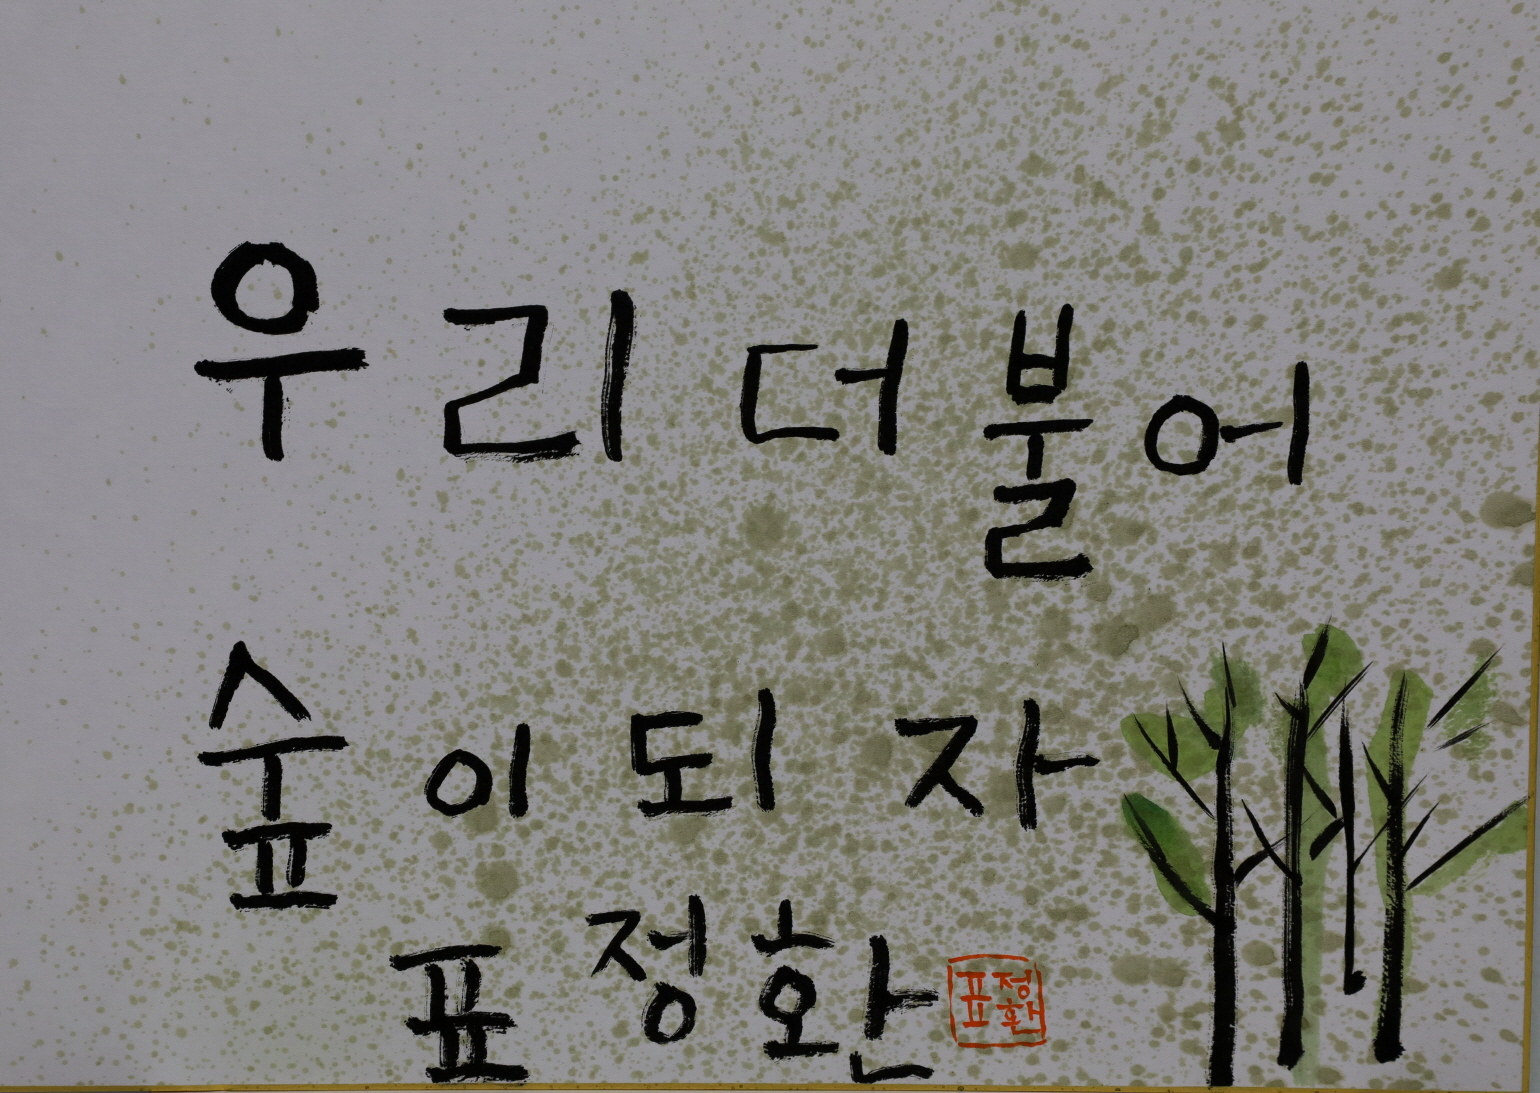 우리 더불어
숲이 되자
표정환
표정환